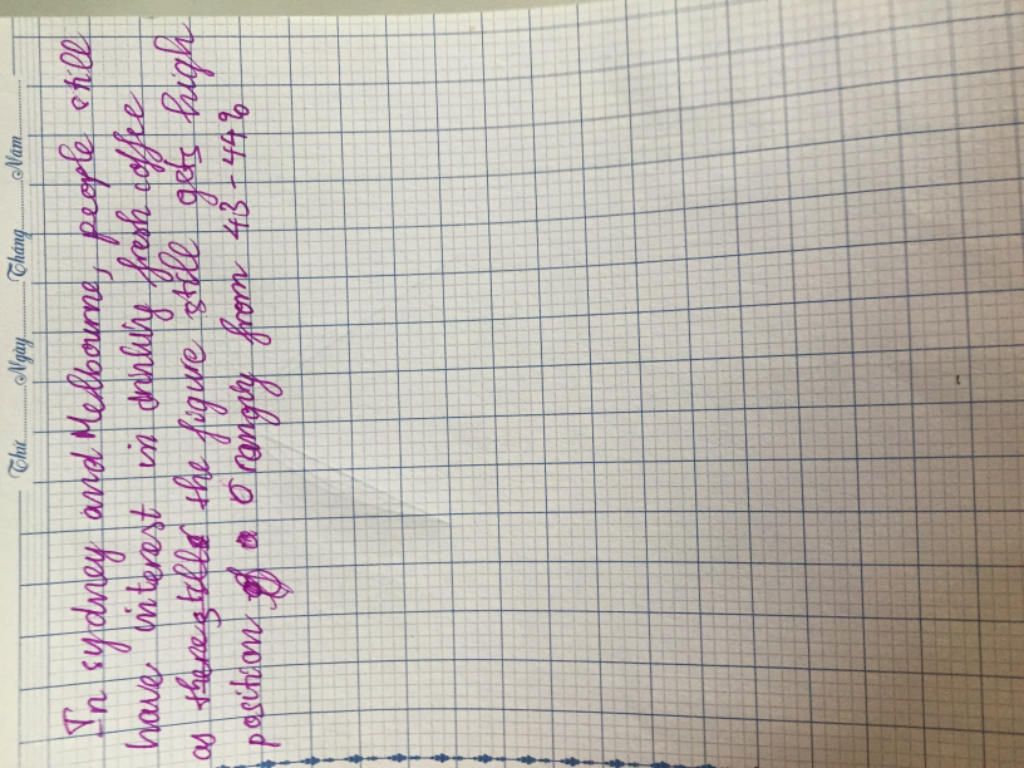 Thứ Ngày Tháng Năm
In sydney and Melbourne, people still
have interest in fresh coffee
as the figure still gets high
position a from 43-44%